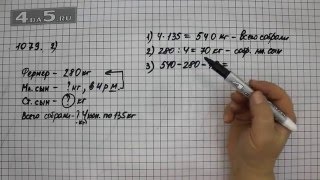 4da5.RU
1079. 2)
Фермер – 280 кг
Мл. сын – ? кг, в 4 р М.
Ст. сын – ? кг
Всего собрали – ? 4 по 135 кг
кг
1) 4 · 135 = 540 кг – всего собрали
2) 280 : 4 = 70 кг – сын
3) 540 – 280 –